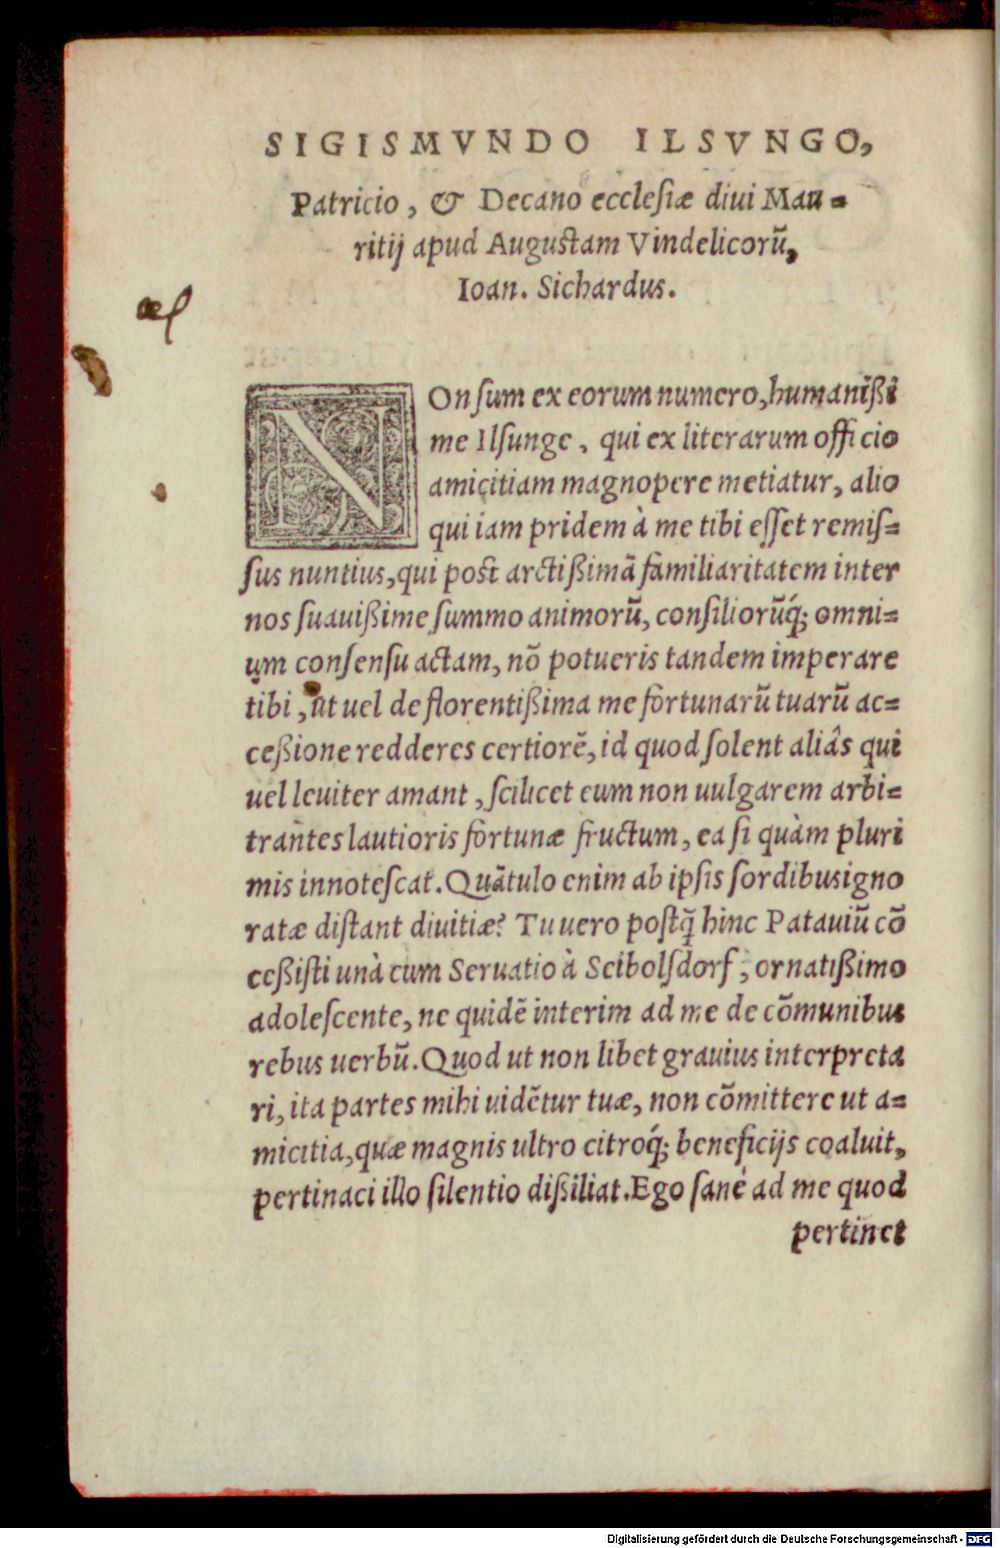 SIGISMVNDO ILSVNGO,
Patricio, & Decano ecclesiæ diui Mau-
ritij apud Augustam Vindelicorũ,
Ioan. Sichardus.
NOn sum ex eorum numero, humanißi
me Ilsunge, qui ex literarum officio
amicitiam magnopere metiatur, alio
qui iam pridem à me tibi esset remis-
sus nuntius, qui post arctißimã familiaritatem inter
nos suauißime summo animorũ, consiliorũq́; omni-
um consensu actam, nõ potueris tandem imperare
tibi, ut uel de florentißima me fortunarũ tuarũ ac-
ceßione redderes certiorẽ, id quod solent aliâs qui
uel leuiter amant, scilicet eum non uulgarem arbi-
trantes lautioris fortunæ fructum, ea si quàm pluri
mis innotescat. Quãtulo enim ab ipsis sordibus igno
ratæ distant diuitiæ? Tu uero postq̃ hinc Patauiũ cõ
ceßisti unà cum Seruatio à Seibolsdorf, ornatißimo
adolescente, ne quidẽ interim ad me de cõmunibus
rebus uerbũ. Quod ut non libet grauius interpreta
ri, ita partes mihi uidẽtur tuæ, non cõmittere ut a-
micitia, quæ magnis ultro citroq́; beneficijs coaluit,
pertinaci illo silentio dißiliat. Ego sanè ad me quod
pertinet
Digitalisierung gefördert durch die Deutsche Forschungsgemeinschaft - DFG